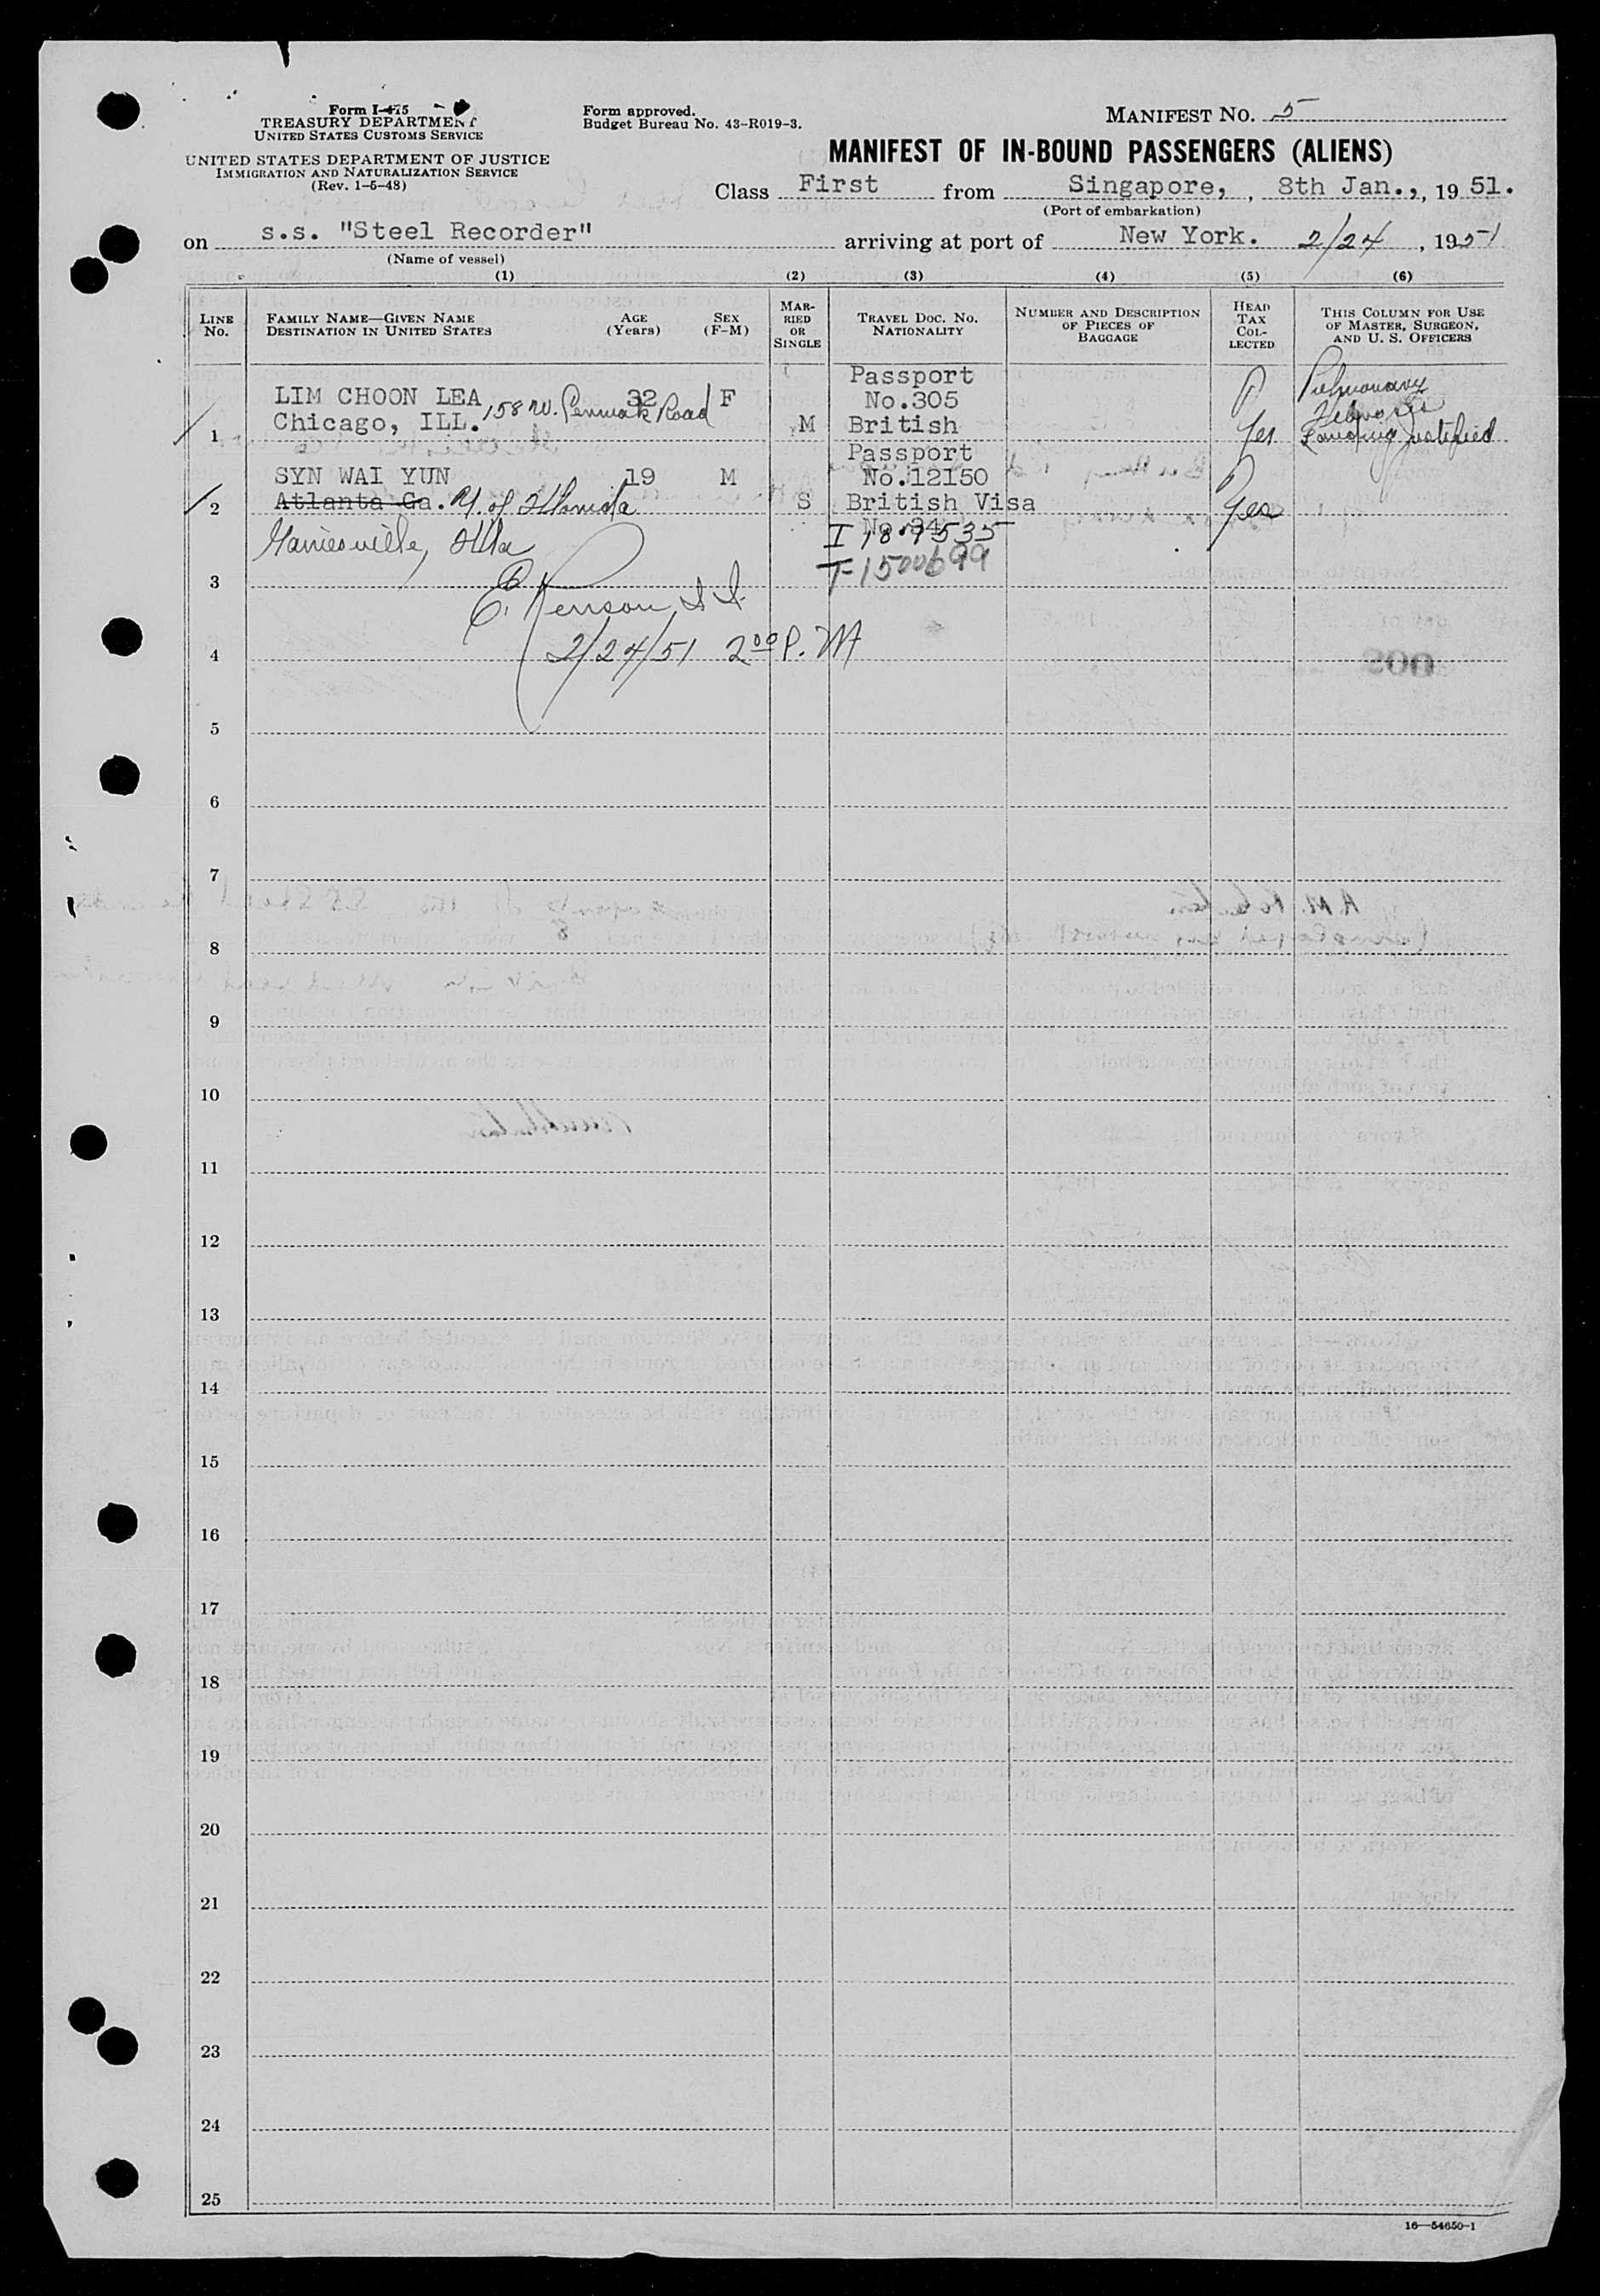 Form I-415
TREASURY DEPARTMENT
UNITED STATES CUSTOMS SERVICE
UNITED STATES DEPARTMENT OF JUSTICE
IMMIGRATION AND NATURALIZATION SERVICE
(Rev. 1-5-48)
Form approved.
Budget Bureau No. 43-R019-3.
MANIFEST NO. 5
MANIFEST OF IN-BOUND PASSENGERS (ALIENS)
Class First from Singapore, , 8th Jan., , 19 51.
(Port of embarkation)
on s.s. "Steel Recorder" arriving at port of New York. 2/24 , 1951
(Name of vessel)
(1) (2) (3) (4) (5) (6)
LINE No.
FAMILY NAME—GIVEN NAME
DESTINATION IN UNITED STATES
AGE (Years)
SEX (F-M)
MARRIED OR SINGLE
TRAVEL DOC. NO.
NATIONALITY
NUMBER AND DESCRIPTION OF PIECES OF BAGGAGE
HEAD TAX COLLECTED
THIS COLUMN FOR USE OF MASTER, SURGEON, AND U. S. OFFICERS
LIM CHOON LEA 32 F
Chicago, ILL. 158 W. Road
1 M
Passport
No.305
British
Yes
Pulmonary
Fibrosis
Landing justified
SYN WAI YUN 19 M
Atlanta Ga. U. of Florida
2 S
Gainesville, Fla
Passport
No.12150
British Visa
I 1877535
T-1500699
Yes
3
E. S. I.
4 2/24/51 2 00 P. M
5
6
7
8
9
10
11
12
13
14
15
16
17
18
19
20
21
22
23
24
25
16—54650-1